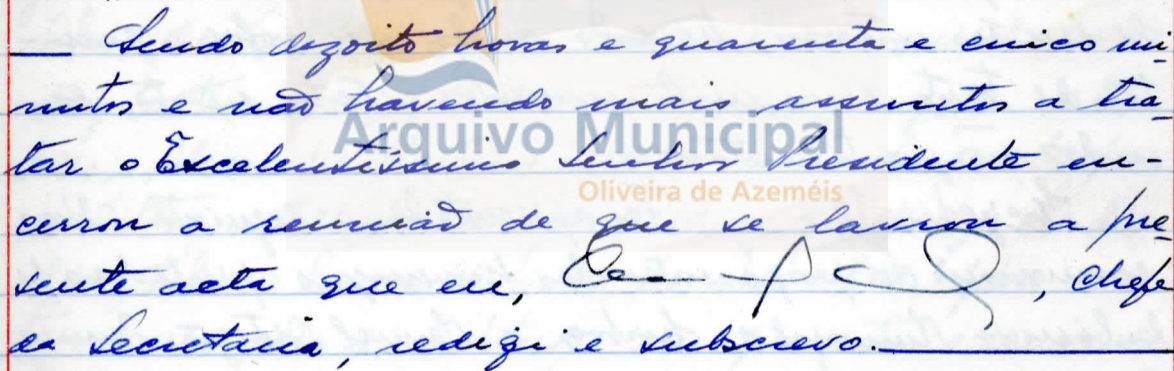 Sendo dezoito horas e quarenta e cinco mi-
nutos e não havendo mais assuntos a tra-
tar o Excelentíssimo Senhor Presidente en-
cerrou a reunião de que se lavrou a pre-
sente acta que eu, , Chefe
da Secretaria, redigi e subscrevo.
Arquivo Municipal
Oliveira de Azeméis